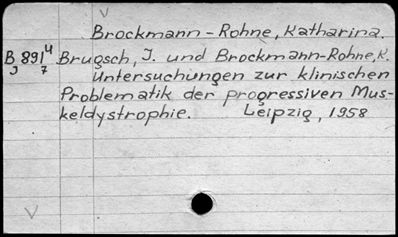 Brockmann-Rohne, Katharina.
B 891 4 Brugsch, J. und Brockmann-Rohne, K.
J 7 Untersuchungen zur klinischen
Problematik der progressiven Mus-
keldystrophie. Leipzig, 1958